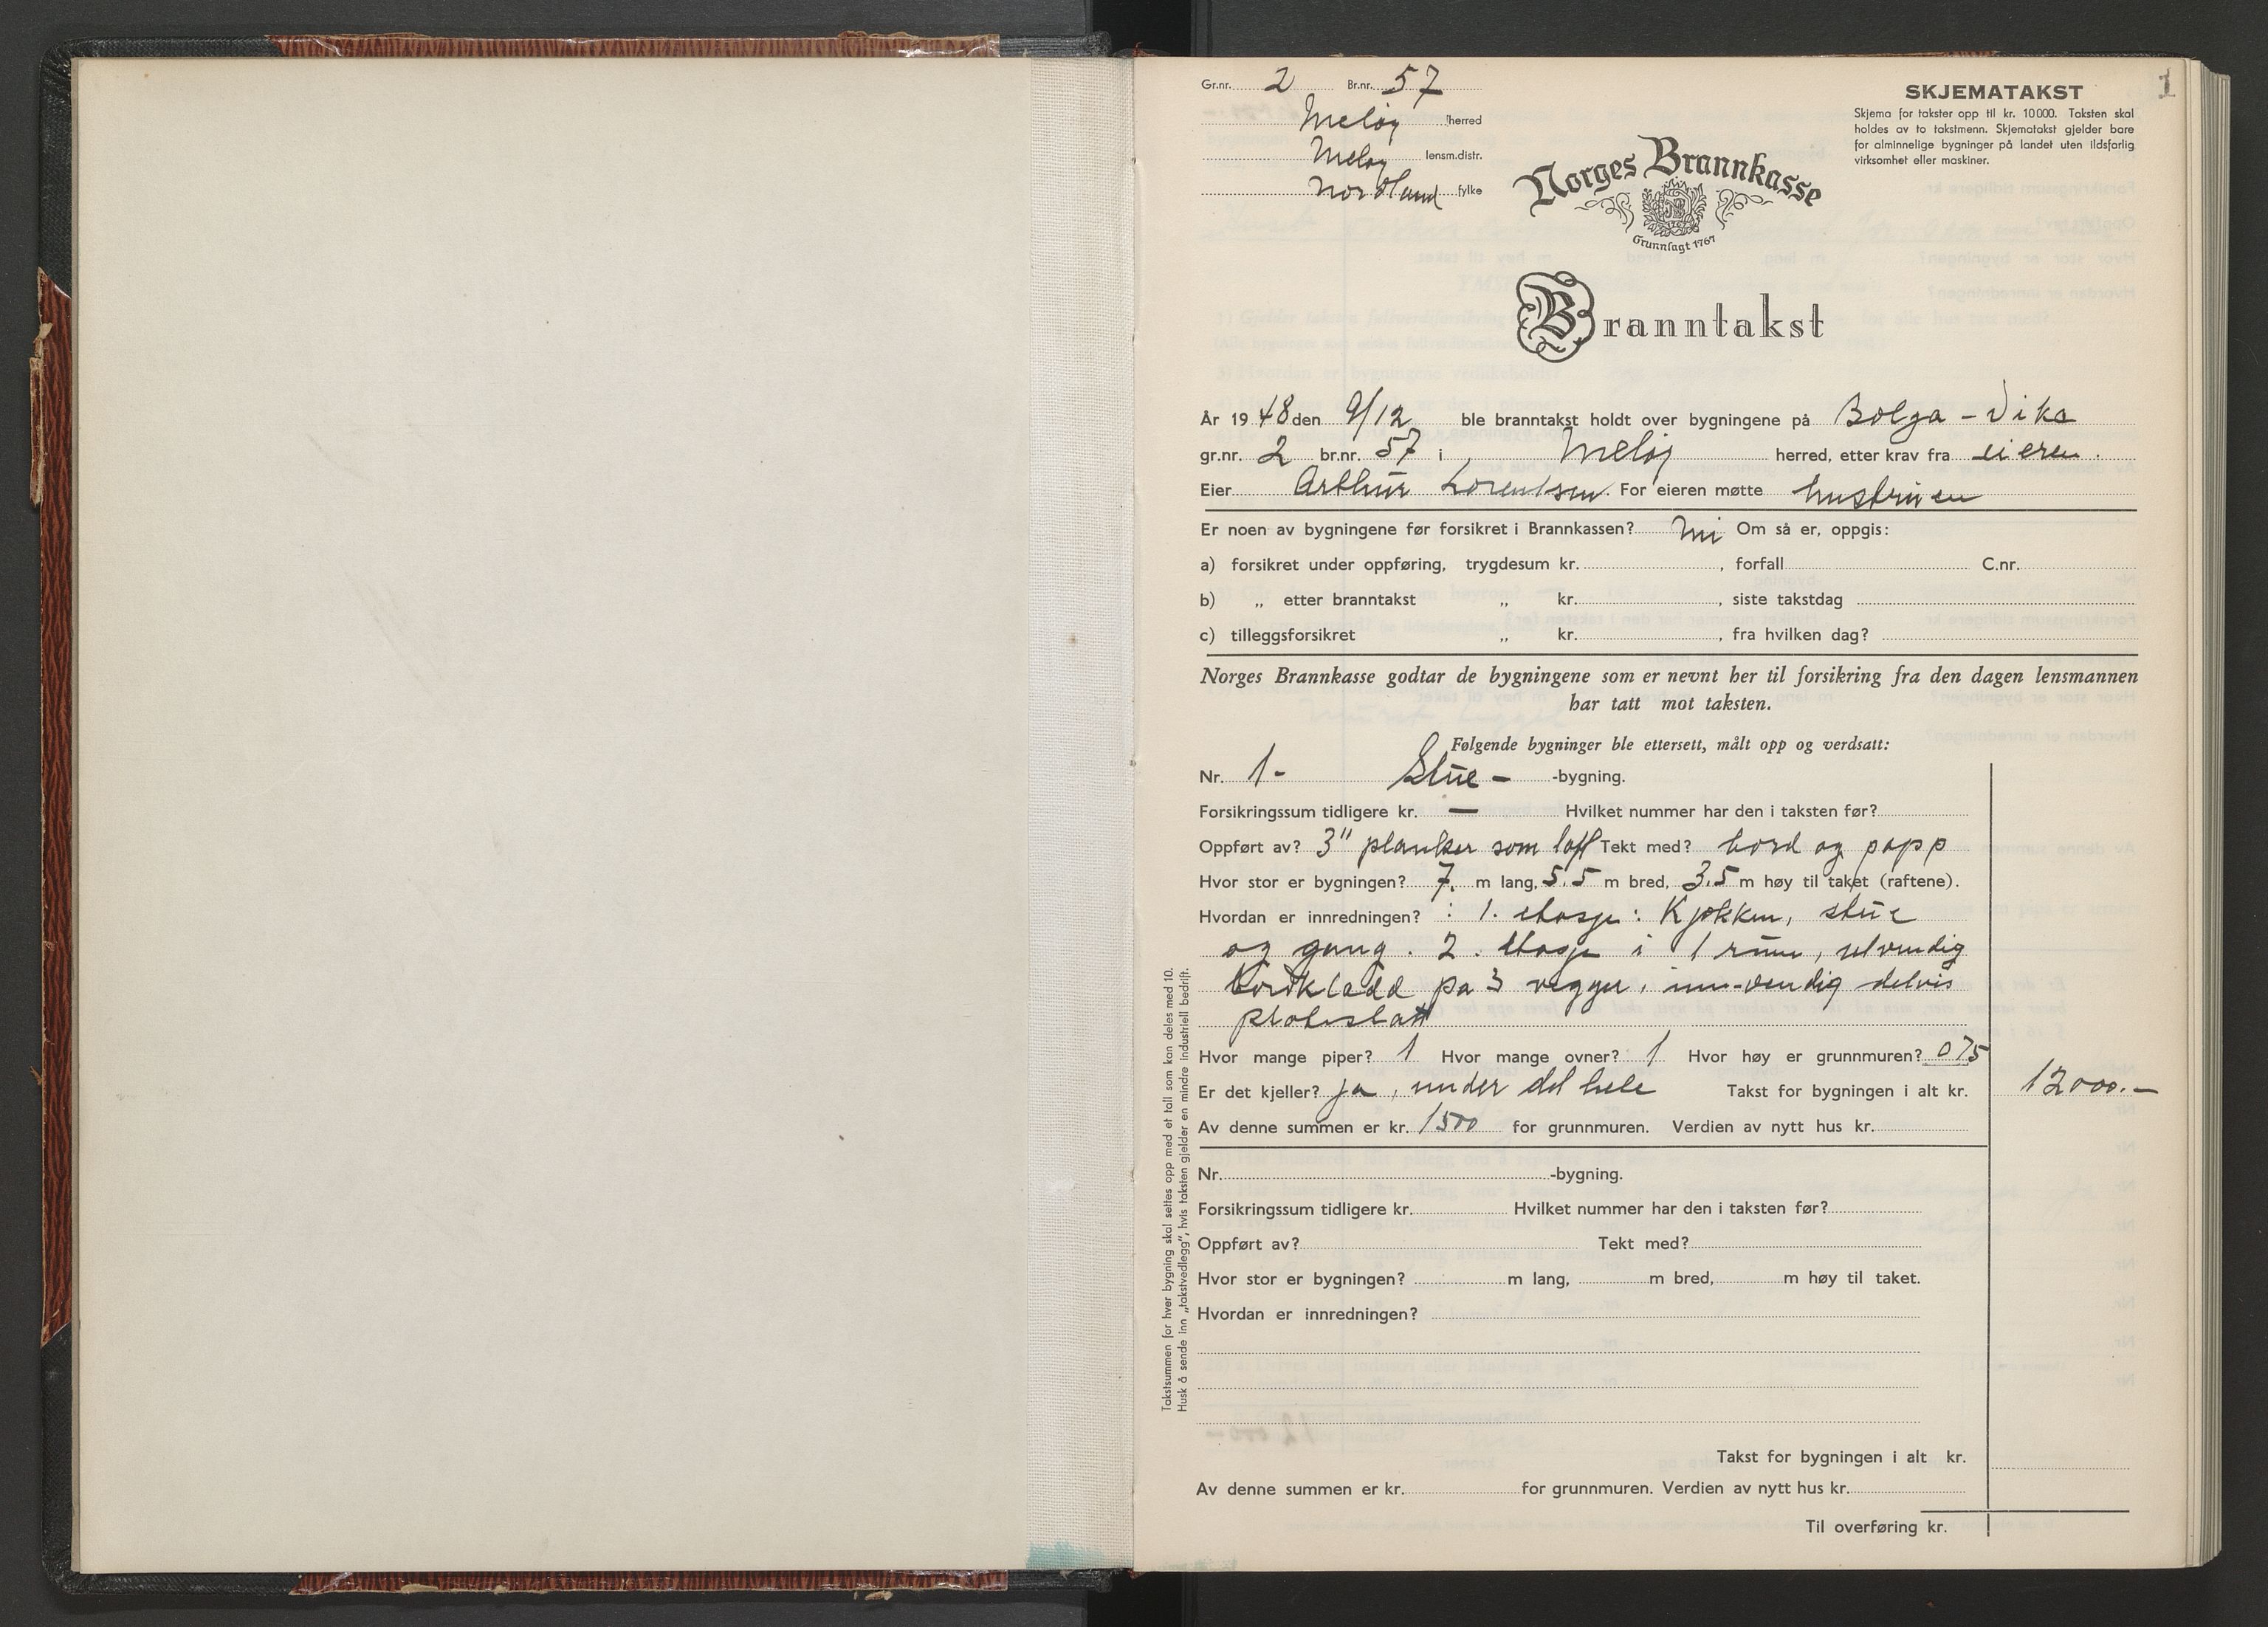 1
Gr.nr. 2 Br.nr. 57
Meløy herred
Meløy lensm.distr.
Nordland fylke
SKJEMATAKST
Skjema for takster opp til kr. 10 000. Taksten skal
holdes av to takstmenn. Skjematakst gjelder bare
for alminnelige bygninger på landet uten ildsfarlig
virksomhet eller maskiner.
Norges Brannkasse
Grunnlagt 1767
Branntakst
År 1948 den 9/12 ble branntakst holdt over bygningene på Bolga - Vika
gr.nr. 2 br.nr. 57 i Meløy herred, etter krav fra eieren.
Eier Arthur Lorentsen. For eieren møtte hustruen
Er noen av bygningene før forsikret i Brannkassen? Om så er, oppgis:
a) forsikret under oppføring, trygdesum kr. , forfall C.nr.
b) „ etter branntakst „ kr. , siste takstdag
c) tilleggsforsikret „ kr. , fra hvilken dag?
Norges Brannkasse godtar de bygningene som er nevnt her til forsikring fra den dagen lensmannen
har tatt mot taksten.
Følgende bygninger ble ettersett, målt opp og verdsatt:
Nr. 1- Stue - -bygning.
Forsikringssum tidligere kr. — Hvilket nummer har den i taksten før?
Oppført av? 3" planker som loft Tekt med? bord og papp
Hvor stor er bygningen? 7. m lang, 5.5 m bred, 3.5 m høy til taket (raftene).
Hvordan er innredningen? : 1. etasje: Kjøkken, stue
og gang. 2. etasje i 1 rum, utvendig
bordkledd på 3 vegger, inn-vendig delvis
plateslatt
Hvor mange piper? 1 Hvor mange ovner? 1 Hvor høy er grunnmuren? 075
Er det kjeller? ja, under det hele Takst for bygningen i alt kr. 12000.-
Av denne summen er kr. 1500 for grunnmuren. Verdien av nytt hus kr.
Nr. -bygning.
Forsikringssum tidligere kr. Hvilket nummer har den i taksten før?
Oppført av? Tekt med?
Hvor stor er bygningen? m lang, m bred, m høy til taket.
Hvordan er innredningen?
Takst for bygningen i alt kr.
Av denne summen er kr. for grunnmuren. Verdien av nytt hus kr.
Til overføring kr.
Takstsummen for hver bygning skal settes opp med et tall som kan deles med 10.
Husk å sende inn „takstvedlegg", hvis taksten gjelder en mindre industriell bedrift.